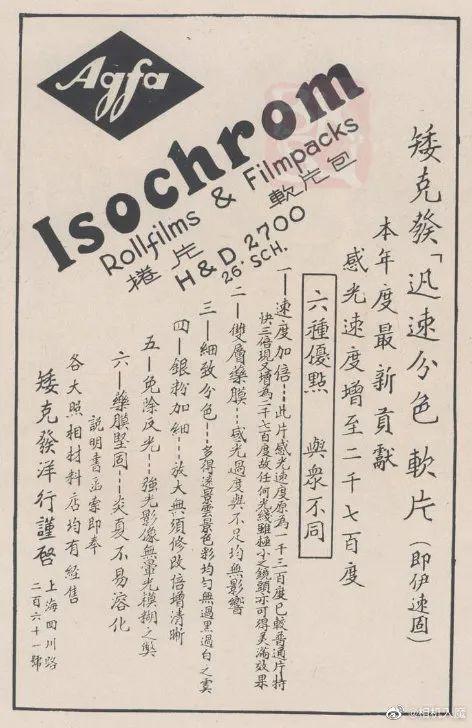 Agfa
Isochrom
Rollfilms & Filmpacks
捲片 軟片包
H & D. 2700
26° SCH.
矮克發「迅速分色軟片(即伊速固)
本年度最新貢獻
感光速度增至二千七百度
六種優點 與衆不同
一—速度加倍…此片感光速度原為一千三百度已較普通片持
快三倍現又增為二千七百度故任何光綫雖極小之鏡頭亦可得美滿效果
二—雙層藥膜…感光過度與不足均無影響
三—細致分色—多得遠景雲景色彩均勻無過黑過白之
四—銀粉加細…放大無須修改倍增清晰
五—免除反光…強光影像無暈光模糊之弊
六—藥膜堅固…炎夏不易溶化
說明書函索即奉
各大照相材料店均有經售
矮克發洋行謹啓
上海四川路
二百六十一號
@相机人座